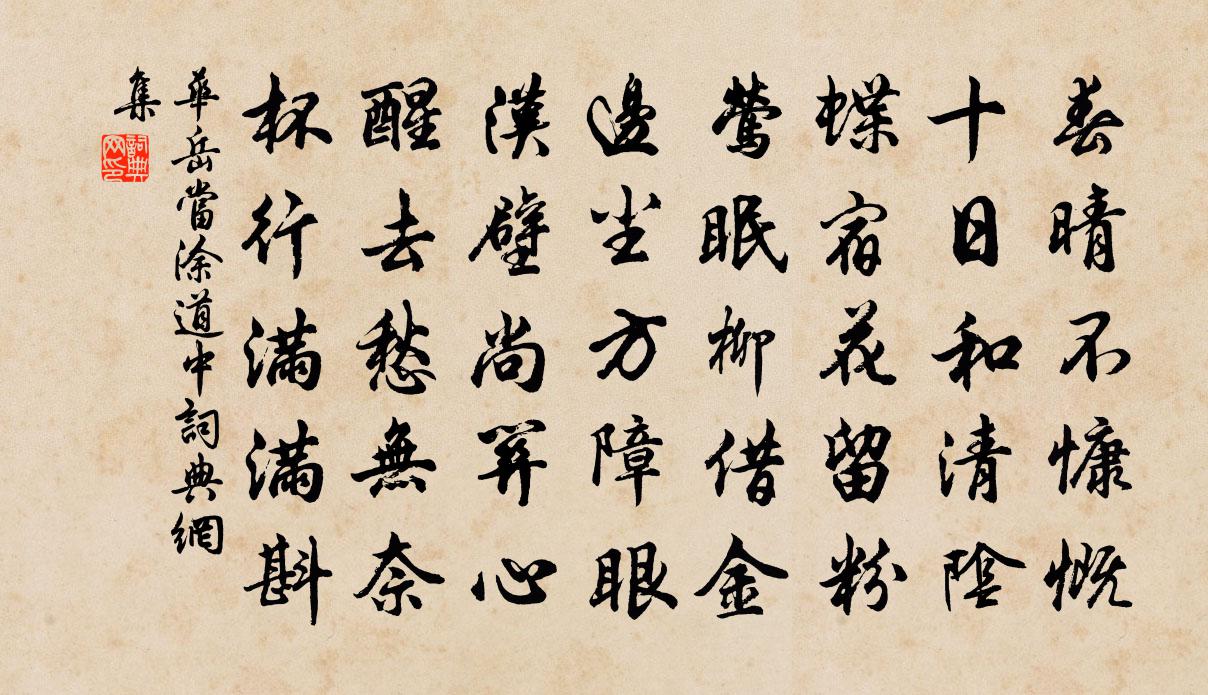 春晴不慷慨
十日和清陰
蝶宿花留粉
鶯眠柳借金
邊塵方障眼
漢壁尚笄心
醒去愁無奈
杯行滿滿斟
華岳當涂道中詞典網
集
詞典網印